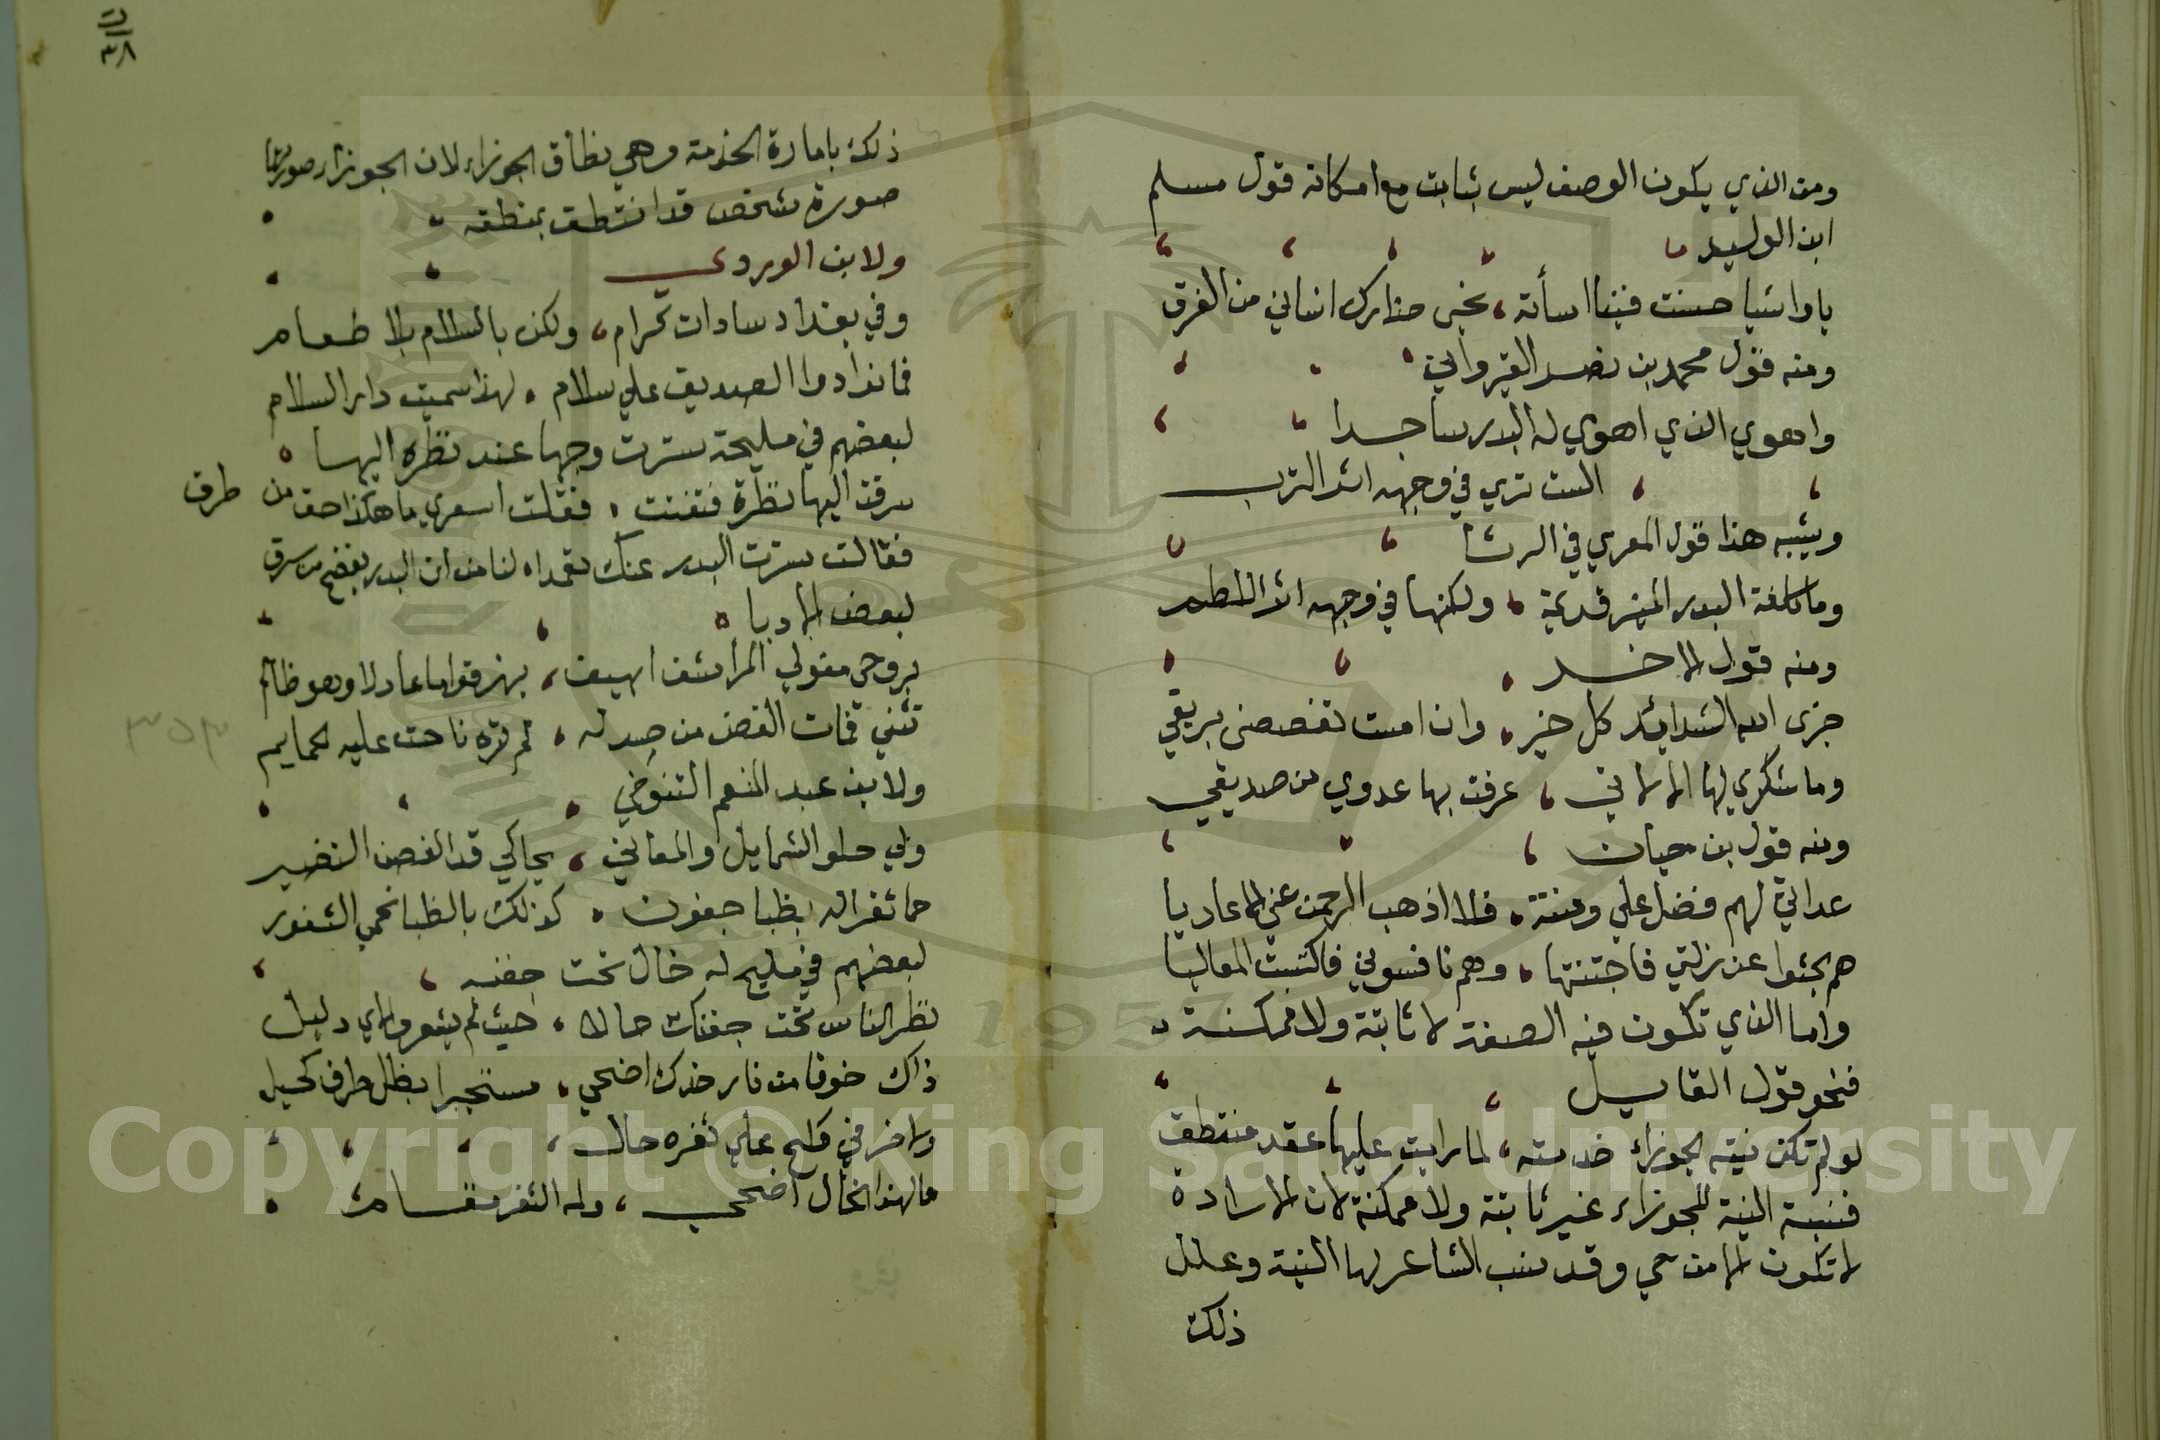 ومن الذي يكون الوصف ليس بثابت مع امكانه قول مسلم
ابن الوليد
يا واشيا حسنت فينا اسأته نجى حذارك انساني من الغرق
ومنه قول محمد بن نصر القيرواني
واهوي الذي اهوي له البدر ساجدا
الست تري في وجهه اثر الترب
ويشبه هذا قول المعري في الرثا
وما كلفة البدر المنير قديمة ولكنها في وجهه اثر اللطم
ومنه قول الاخر
جزى الله الشدايد كل خير وان امست تغصصني بريقي
وما شكري لها الا لاني عرفت بها عدوي من صديقي
ومنه قول بن حيان
عداتي لهم فضل علي ومنة فلا اذهب الرحمن عني الاعاديا
هم بحثوا عن زلتي فاجتنبتها وهم نافسوني فاكتسبت المعاليا
واما الذي تكون فيه الصفة لا ثابتة ولا ممكنة
فنحو قول القايل
لو لم تكن نية الجوزاء خدمته لما رايت عليها عقد منتطق
فنسبة النية للجوزاء غير ثابتة ولا ممكنة لان الارادة
لا تكون الا من حي وقد نسب الشاعر لها النية وعلل
ذلك
ت
٣٨
ذلك بامارة الخدمة وهي نطاق الجوزاء لان الجوزاء صورتها
صورة شخص قد انتطق بمنطقه
ولابن الوردي
وفي بغداد سادات كرام ولكن بالسلام بلا طعام
فما زادوا الصديق علي سلام لهذا سميت دار السلام
لبعضهم في مليحة سترت وجهها عند نظره اليها
سرقت اليها نظرة فتفتت فقلت اسعري ما هكذا حق من طرق
فقالت سترت البدر عنك تعمدا لنا من ان البدر يفضح من سرق
لبعض الادبا
بروحي معسول المراشف اهيف يهز قواما عادلا وهو ظالم
تثني فمات الغصن من له الم تره ناحت عليه الحمايم
ولابن عبد المنعم التنوخي
ولي حلو الشمايل والمعاني يحاكي قد الغصن النضير
حما ثغرا له بظبا جفون كذلك بالظبا تحمي الثغور
لبعضهم في مليح له خال تحت جفنه
نظر الناس تحت جفنك خالا حيث لم يشعروا لاي دليل
ذاك خوفا من نار خدك اضحي مستجيرا بظل طرف كحيل
ولاخر في مليح علي ثغره خال
ما لهذا الخال اضحي وله الثغر مقام